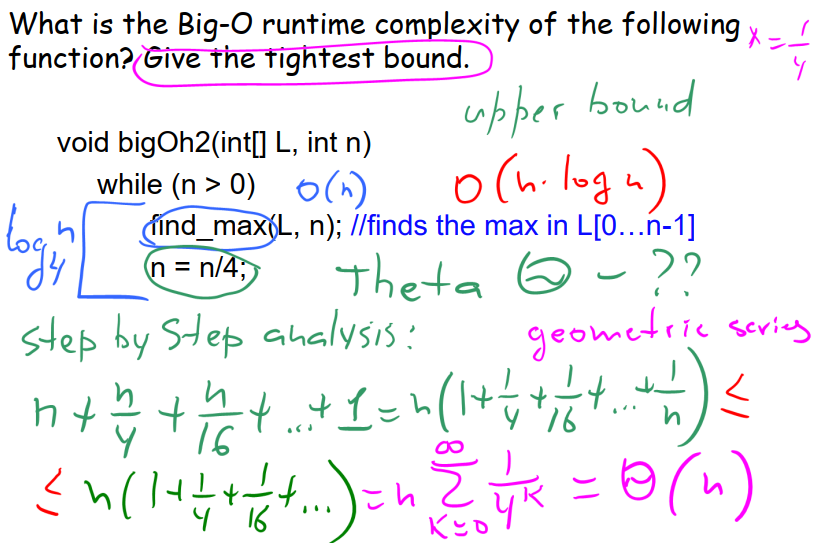 What is the Big-O runtime complexity of the following
function? Give the tightest bound.
x = 1/4
upper bound
void bigOh2(int[] L, int n)
while (n > 0) O(n) O(n·log n)
find_max(L, n); //finds the max in L[0…n-1]
log₄ n
n = n/4; Theta Θ - ??
step by step analysis: geometric series
n + n/4 + n/16 + ... + 1 = n(1 + 1/4 + 1/16 + ... + 1/n) ≤
≤ n(1 + 1/4 + 1/16 + ...) = n ∑_{K=0}^{∞} 1/4^K = Θ(n)